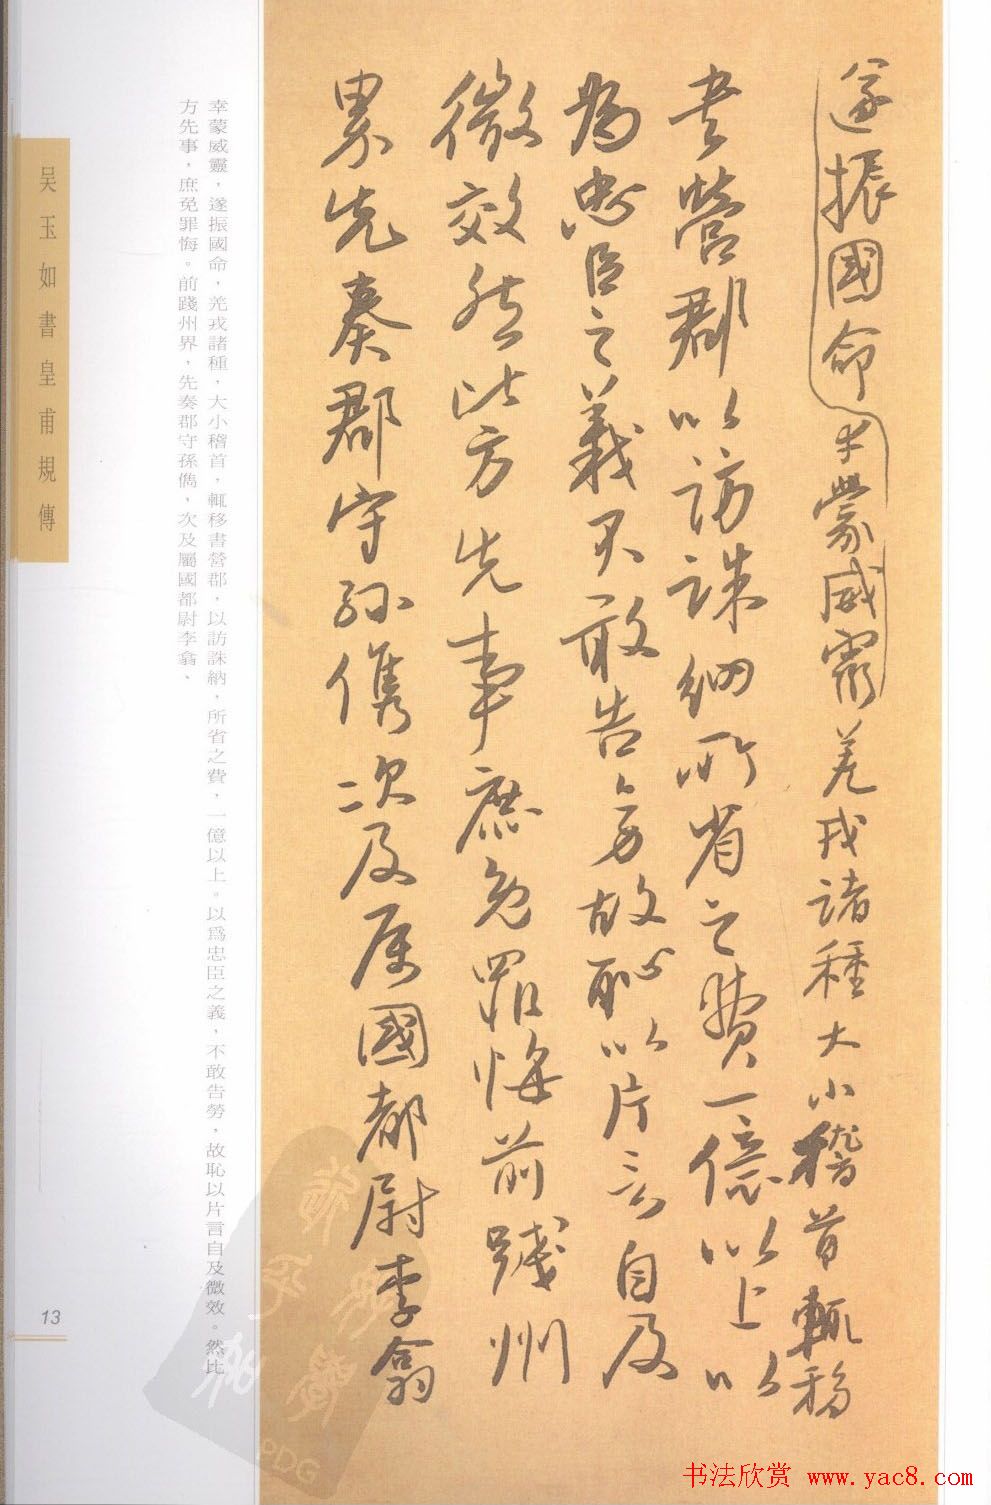 遂振國命幸蒙威靈羌戎諸種大小稽首輒移
書營郡以訪誅納所省之費一億以上以
為忠臣之義不敢告勞故恥以片言自及
微效然比方先事庶免罪悔前踐州
界先奏郡守孫儁次及属國都尉李翕
幸蒙威靈，遂振國命，羌戎諸種，大小稽首，輒移書營郡，以訪誅納，所省之費，一億以上。以爲忠臣之義，不敢告勞，故恥以片言自及微效。然比
方先事，庶免罪悔。前踐州界，先奏郡守孫儁，次及屬國都尉李翕、
吴玉如書皇甫規傳
13
PDG
书法欣赏 www.yac8.com